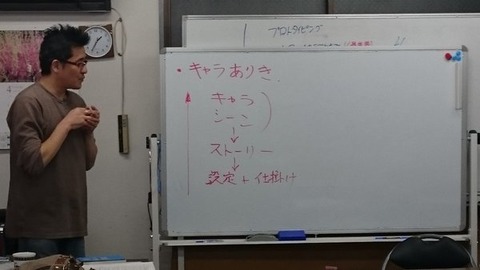 プロトタイピング
・キャラありき
キャラ
シーン
↓
ストーリー
↓
設定 + 仕掛け